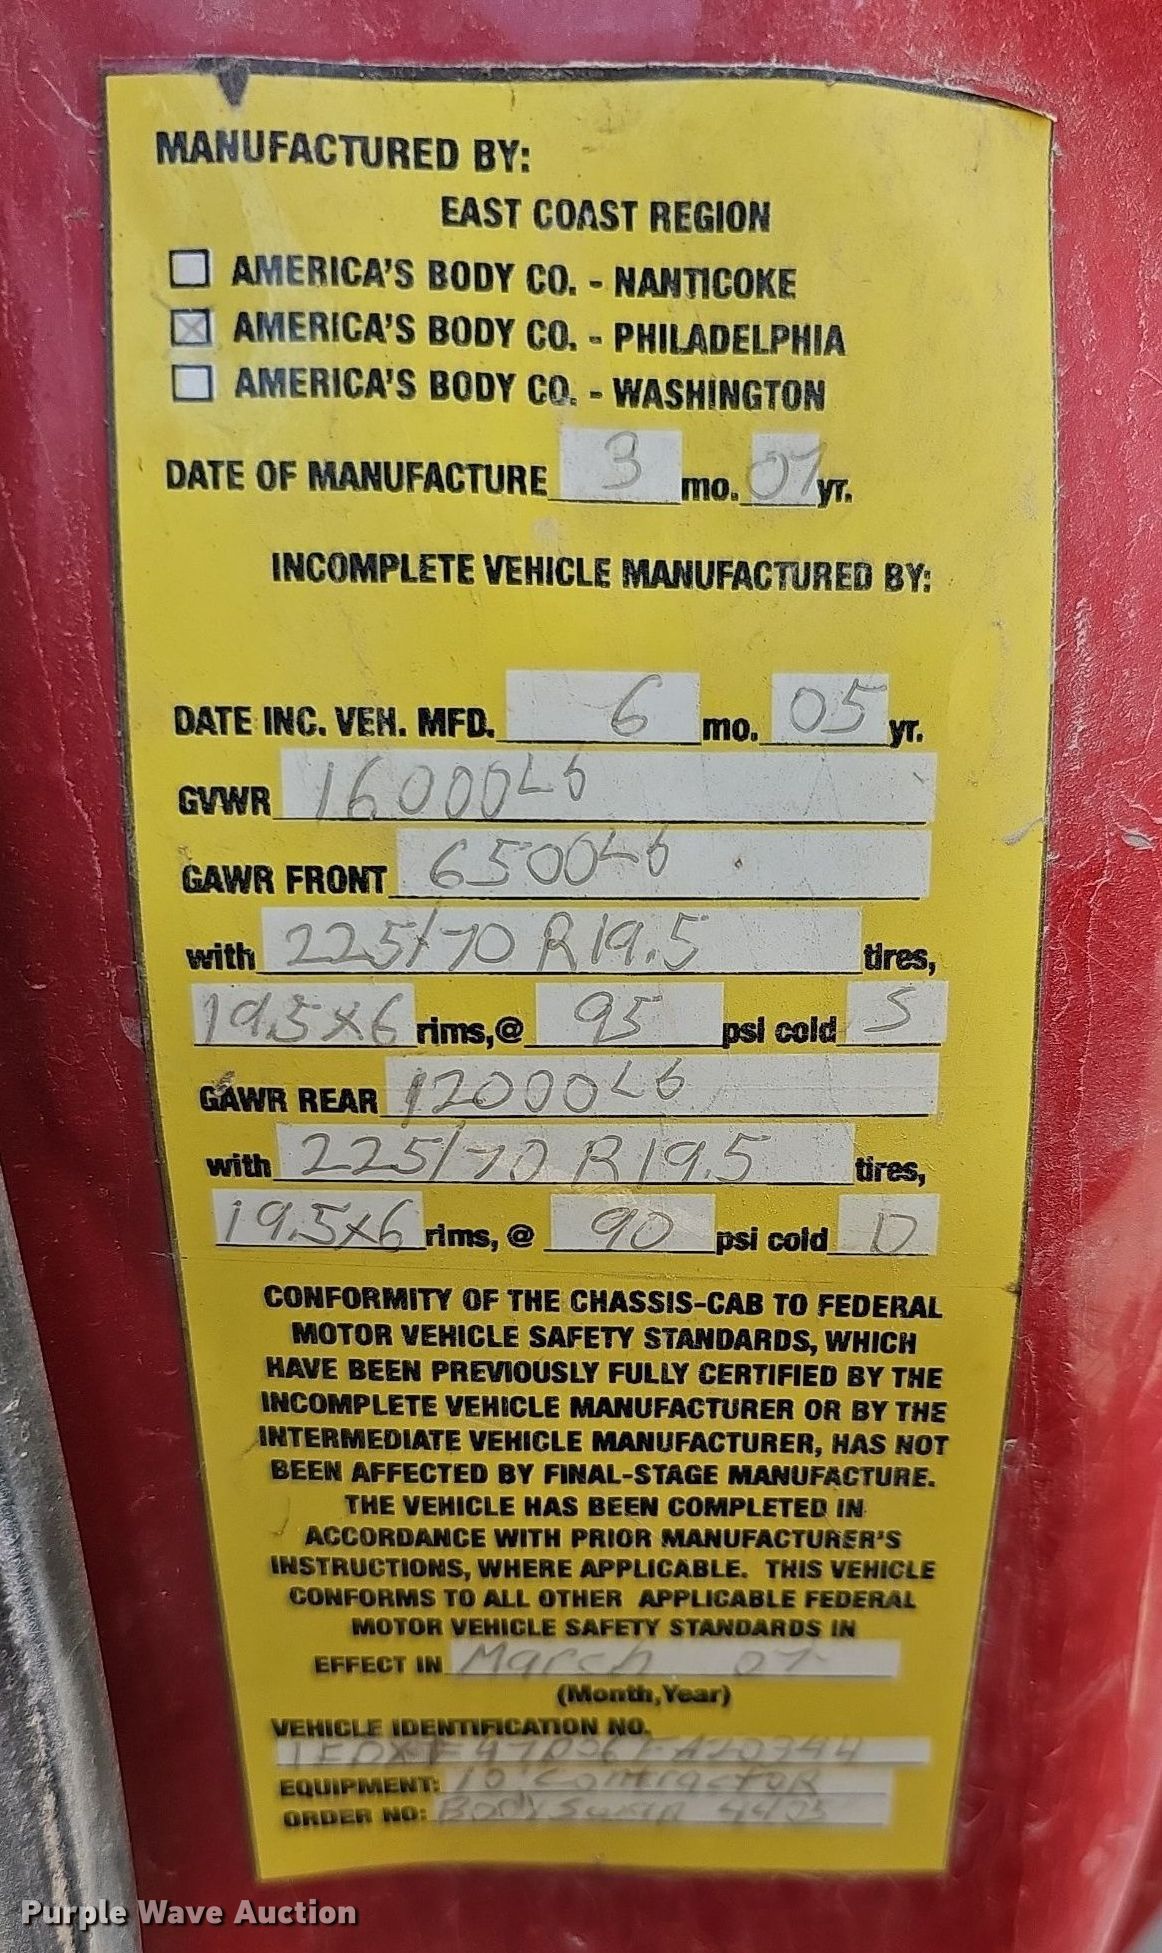 MANUFACTURED BY:
EAST COAST REGION
☐ AMERICA'S BODY CO. - NANTICOKE
☒ AMERICA'S BODY CO. - PHILADELPHIA
☐ AMERICA'S BODY CO. - WASHINGTON
DATE OF MANUFACTURE 3 mo. 07 yr.
INCOMPLETE VEHICLE MANUFACTURED BY:
DATE INC. VEH. MFD. 6 mo. 05 yr.
GVWR 16000Lb
GAWR FRONT 6500Lb
with 225/70 R19.5 tires,
19.5x6 rims,@ 95 psi cold S
GAWR REAR 12000Lb
with 225/70 R19.5 tires,
19.5x6 rims, @ 90 psi cold D
CONFORMITY OF THE CHASSIS-CAB TO FEDERAL
MOTOR VEHICLE SAFETY STANDARDS, WHICH
HAVE BEEN PREVIOUSLY FULLY CERTIFIED BY THE
INCOMPLETE VEHICLE MANUFACTURER OR BY THE
INTERMEDIATE VEHICLE MANUFACTURER, HAS NOT
BEEN AFFECTED BY FINAL-STAGE MANUFACTURE.
THE VEHICLE HAS BEEN COMPLETED IN
ACCORDANCE WITH PRIOR MANUFACTURER'S
INSTRUCTIONS, WHERE APPLICABLE. THIS VEHICLE
CONFORMS TO ALL OTHER APPLICABLE FEDERAL
MOTOR VEHICLE SAFETY STANDARDS IN
EFFECT IN March 07
(Month,Year)
VEHICLE IDENTIFICATION NO.
EQUIPMENT: 10' Contractor
ORDER NO: Body
Purple Wave Auction